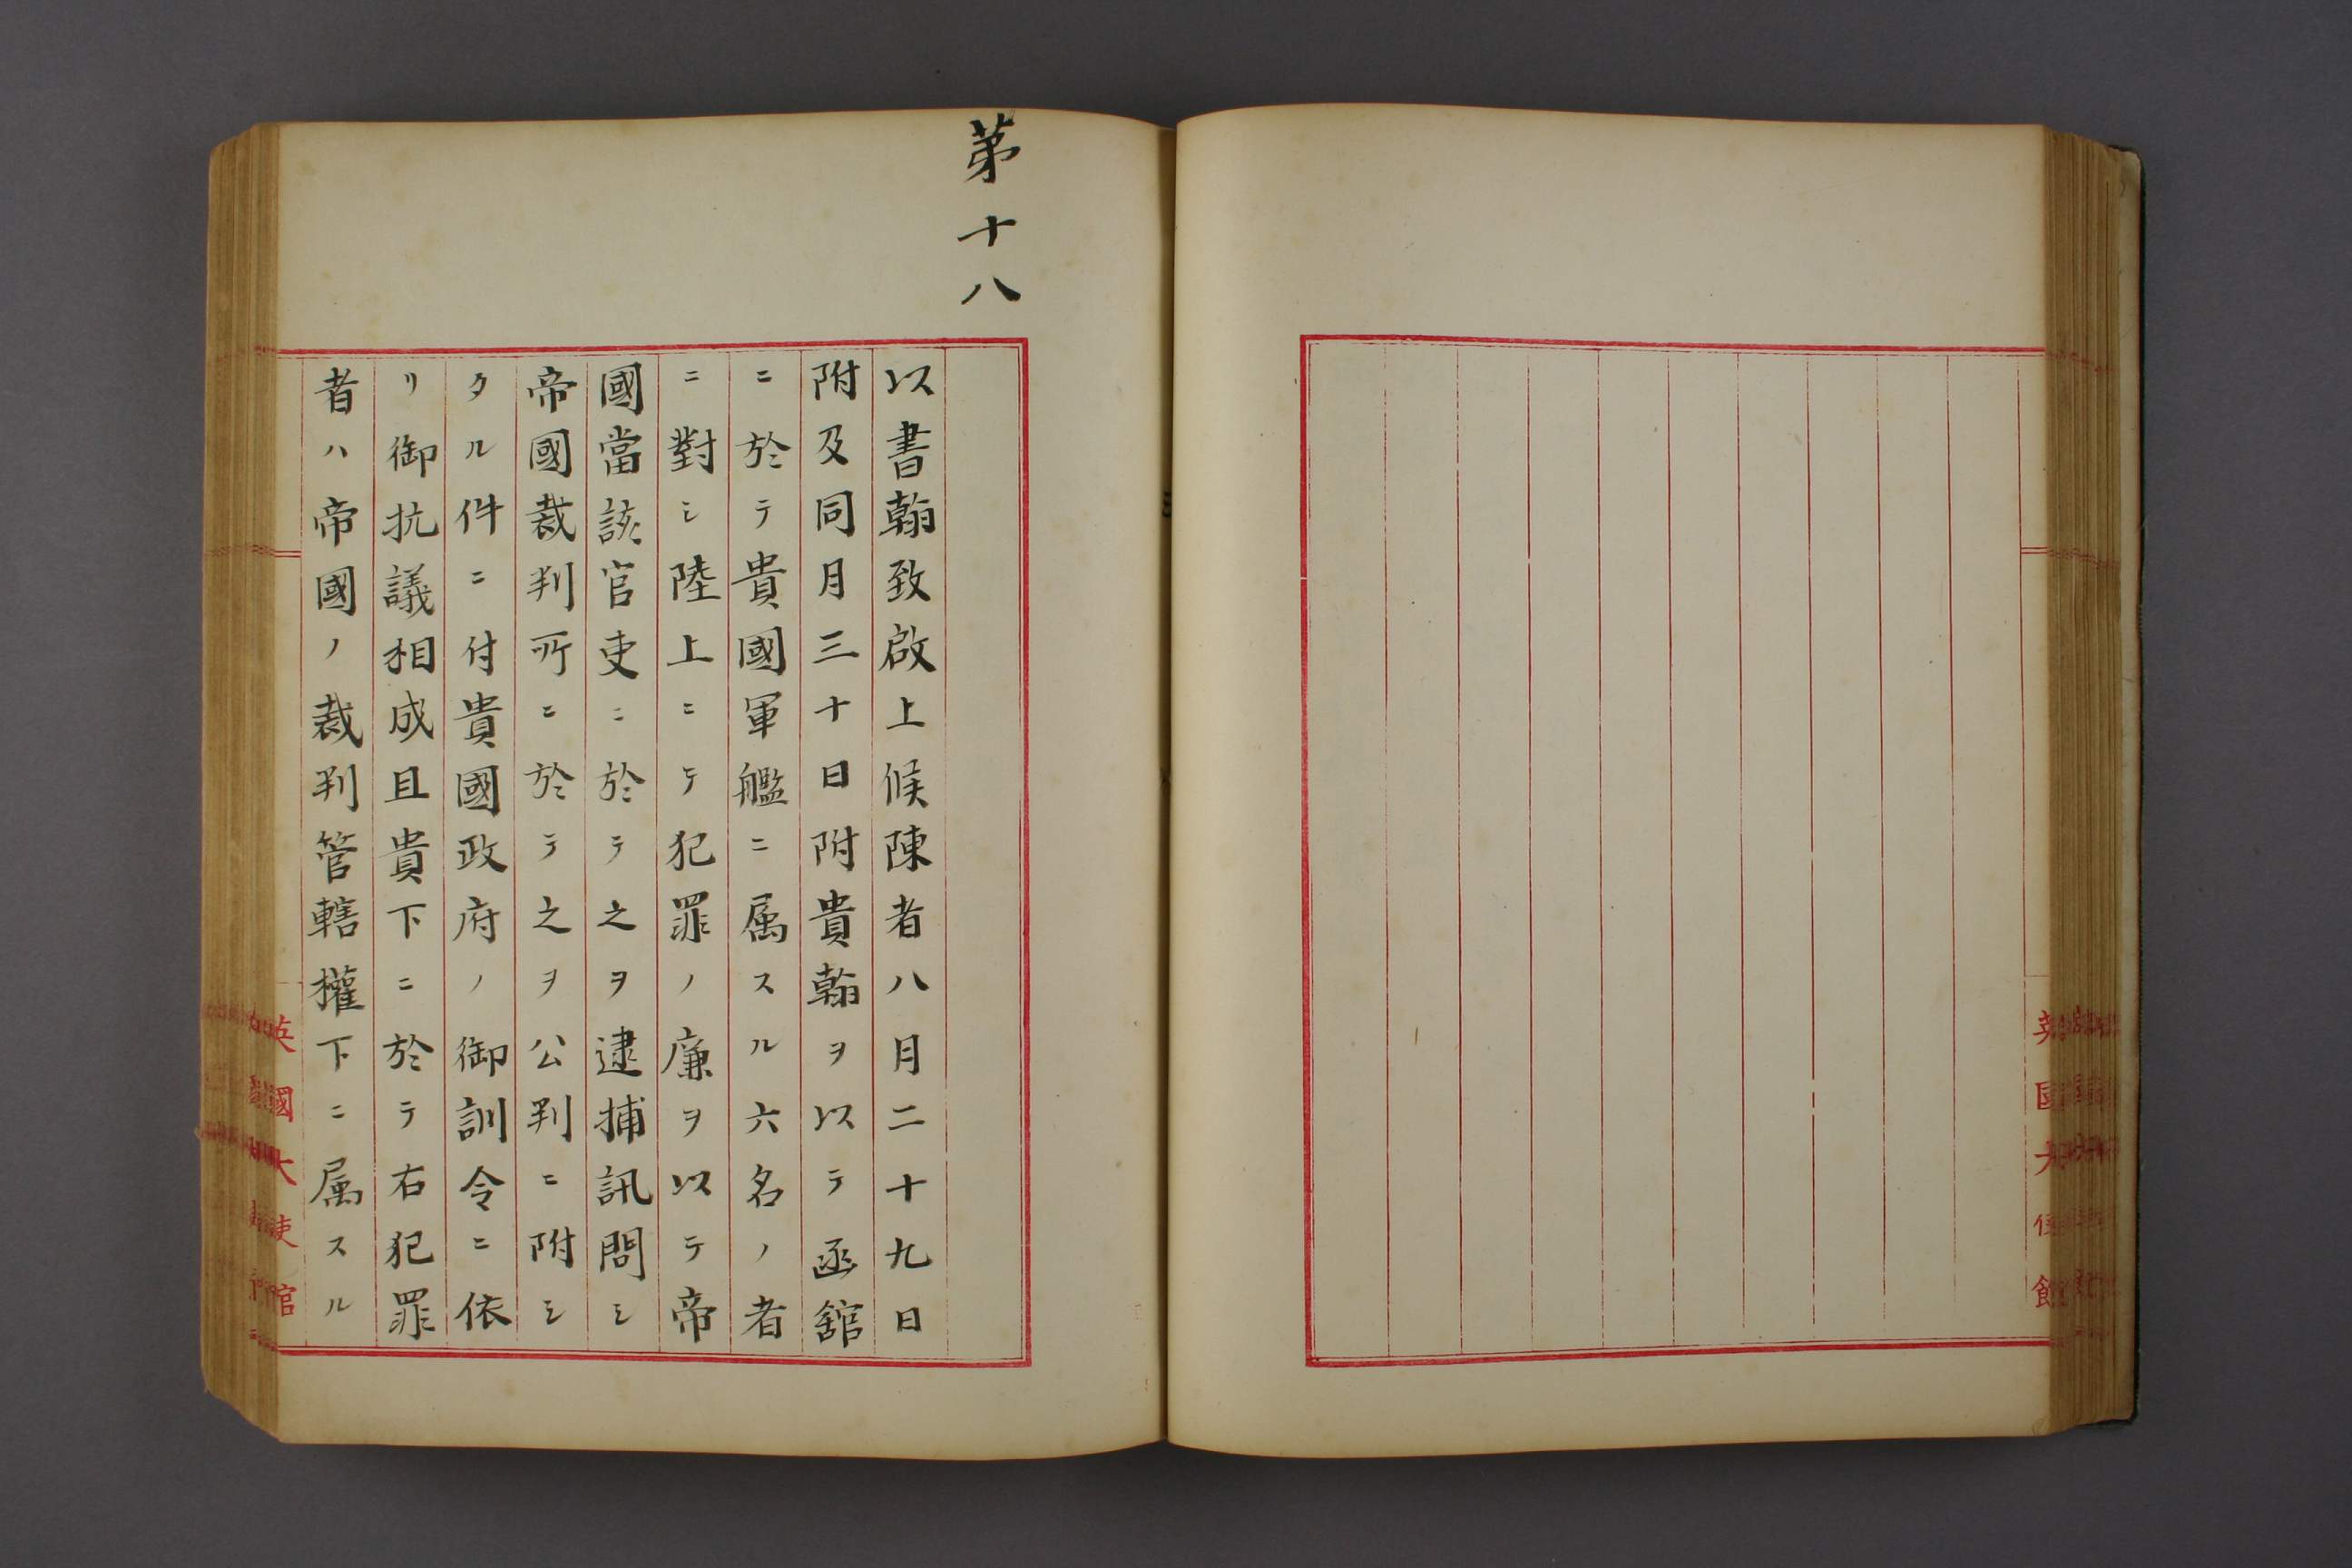 第十八
以書翰致啟上候陳者八月二十九日
附及同月三十日附貴翰ヲ以テ函舘
ニ於テ貴國軍艦ニ属スル六名ノ者
ニ對シ陸上ニテ犯罪ノ廉ヲ以テ帝
國當該官吏ニ於テ之ヲ逮捕訊問シ
帝國裁判所ニ於テ之ヲ公判ニ附シ
タル件ニ付貴國政府ノ御訓令ニ依
リ御抗議相成且貴下ニ於テ右犯罪
者ハ帝國ノ裁判管轄權下ニ属スル
英國大使館